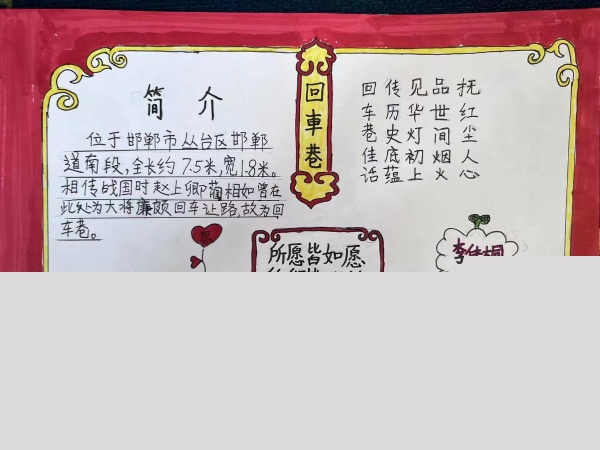 简介
位于邯郸市丛台区邯郸
道南段,全长约75米,宽1.8米。
相传战国时赵上卿蔺相如曾在
此处为大将廉颇回车让路,故为回
车巷。
回車巷
回车巷佳话
传历史底蕴
见华灯初上
品世间烟火
抚红尘人心
所愿皆如愿